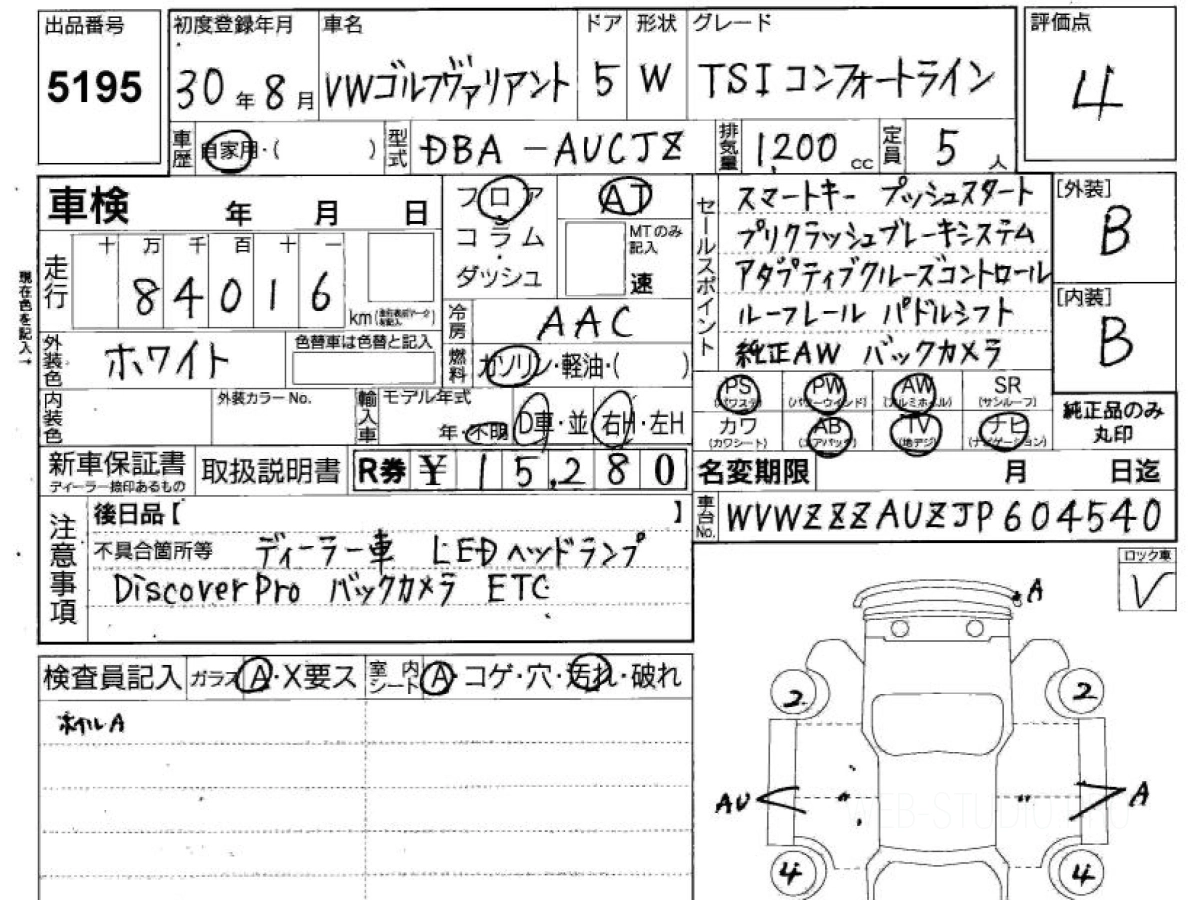 出品番号 初度登録年月 車名 ドア 形状 グレード 評価点
5195 30年8月 VWゴルフヴァリアント 5 W TSI コンフォートライン 4
車歴 自家用・( ) 型式 DBA-AUCJZ 排気量 1,200 cc 定員 5人
車検 年 月 日
フロア・コラム・ダッシュ AT MTのみ記入 速
走行 十 万 千 百 十 一
84016 km
現在色を記入→
冷房 AAC
外装色 ホワイト 色替車は色替と記入
燃料 ガソリン・軽油・( )
内装色 外装カラーNo. 輸入車 モデル年式
年・不明 D車・並 右H・左H
セールスポイント
スマートキー プッシュスタート
プリクラッシュブレーキシステム
アダプティブクルーズコントロール
ルーフレール パドルシフト
純正AW バックカメラ
[外装] B
[内装] B
PS (パワステ) PW (パワーウインド) AW (アルミホイル) SR (サンルーフ)
カワ (カワシート) AB (エアバッグ) TV (地デジ) ナビ (ナビゲーション)
純正品のみ
丸印
新車保証書 ディーラー捺印あるもの 取扱説明書 R券 ¥15,280
名変期限 月 日迄
車台No. WVWZZZAUZJP604540
注意事項
後日品【 】
不具合箇所等 ディーラー車 LEDヘッドランプ
DiscoverPro バックカメラ ETC
ロック車 V
検査員記入 ガラス A・X要ス 室内シート A・コゲ・穴・汚れ・破れ
ホイルA
A
2 2
AU 〃 〃 A
4 4
WEB-STUDIO.PRO